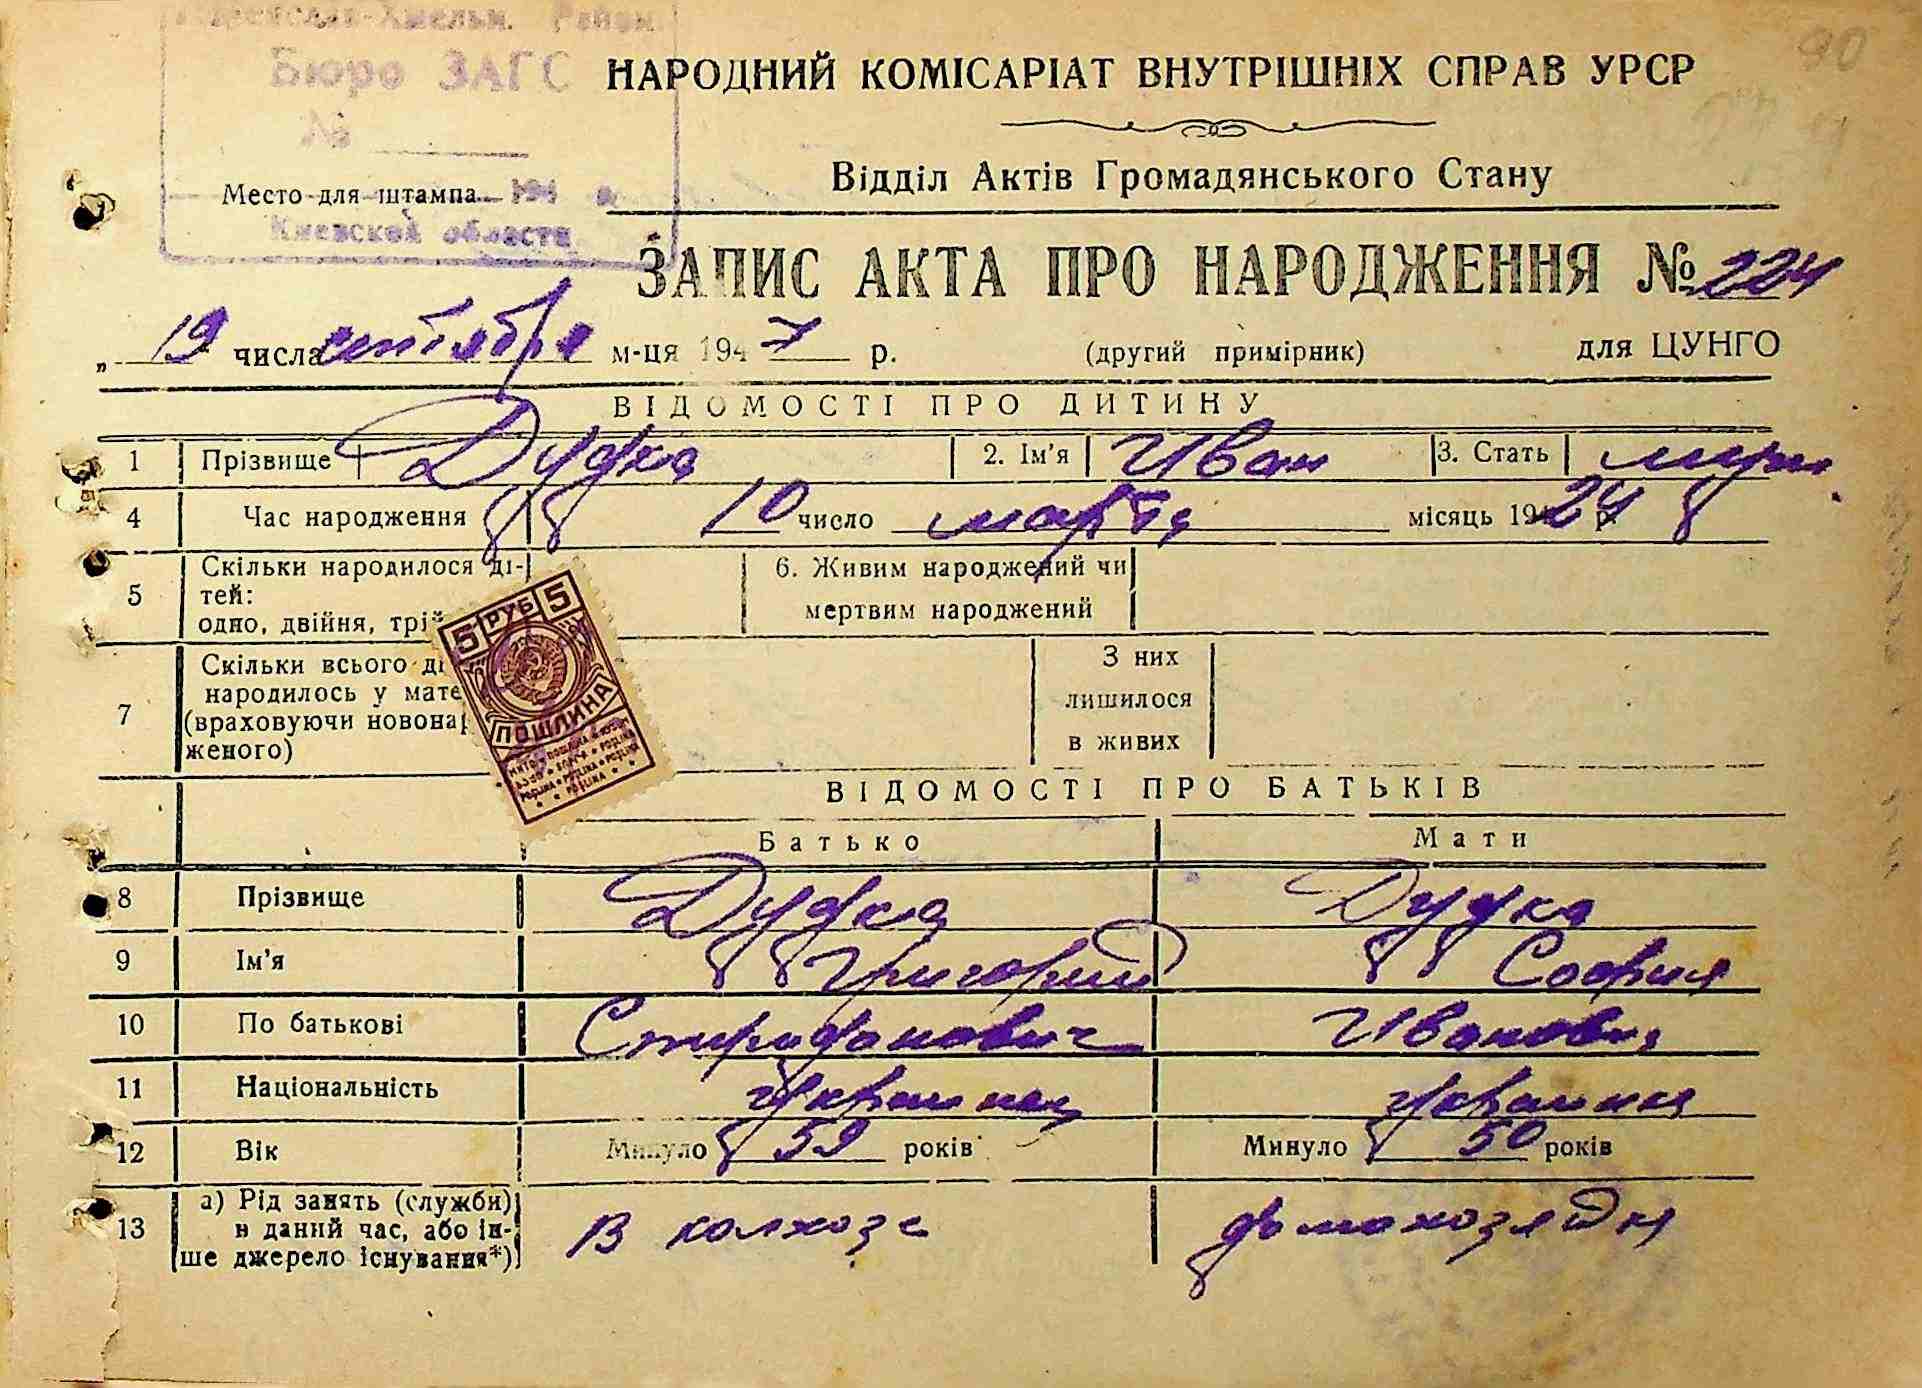 Хмельн. Район.
Бюро ЗАГС
№
Место для штампа 194
Киевской области
90
НАРОДНИЙ КОМІСАРІАТ ВНУТРІШНІХ СПРАВ УРСР
Відділ Актів Громадянського Стану
ЗАПИС АКТА ПРО НАРОДЖЕННЯ № 224
„ 19 числа сентября м-ця 1947 р. (другий примірник) для ЦУНГО
ВІДОМОСТІ ПРО ДИТИНУ
1 Прізвище Дудка 2. Ім'я Иван 3. Стать муж.
4 Час народження 10 число марта місяць 1924 р.
5 Скільки народилося ді-
тей:
одно, двійня, трій
6. Живим народжений чи
мертвим народжений
7 Скільки всього ді
народилось у мате
(враховуючи новонар
женого)
З них
лишилося
в живих
5 РУБ 5
ПОШЛИНА
ВІДОМОСТІ ПРО БАТЬКІВ
Батько Мати
8 Прізвище Дудка Дудка
9 Ім'я Григорий София
10 По батькові Спиридонович Ивановна
11 Національність Украинец Украинка
12 Вік Минуло 59 років Минуло 50 років
13 а) Рід занять (служби)
в даний час, або ін-
ше джерело існування*)
В колхозе домохозяйка